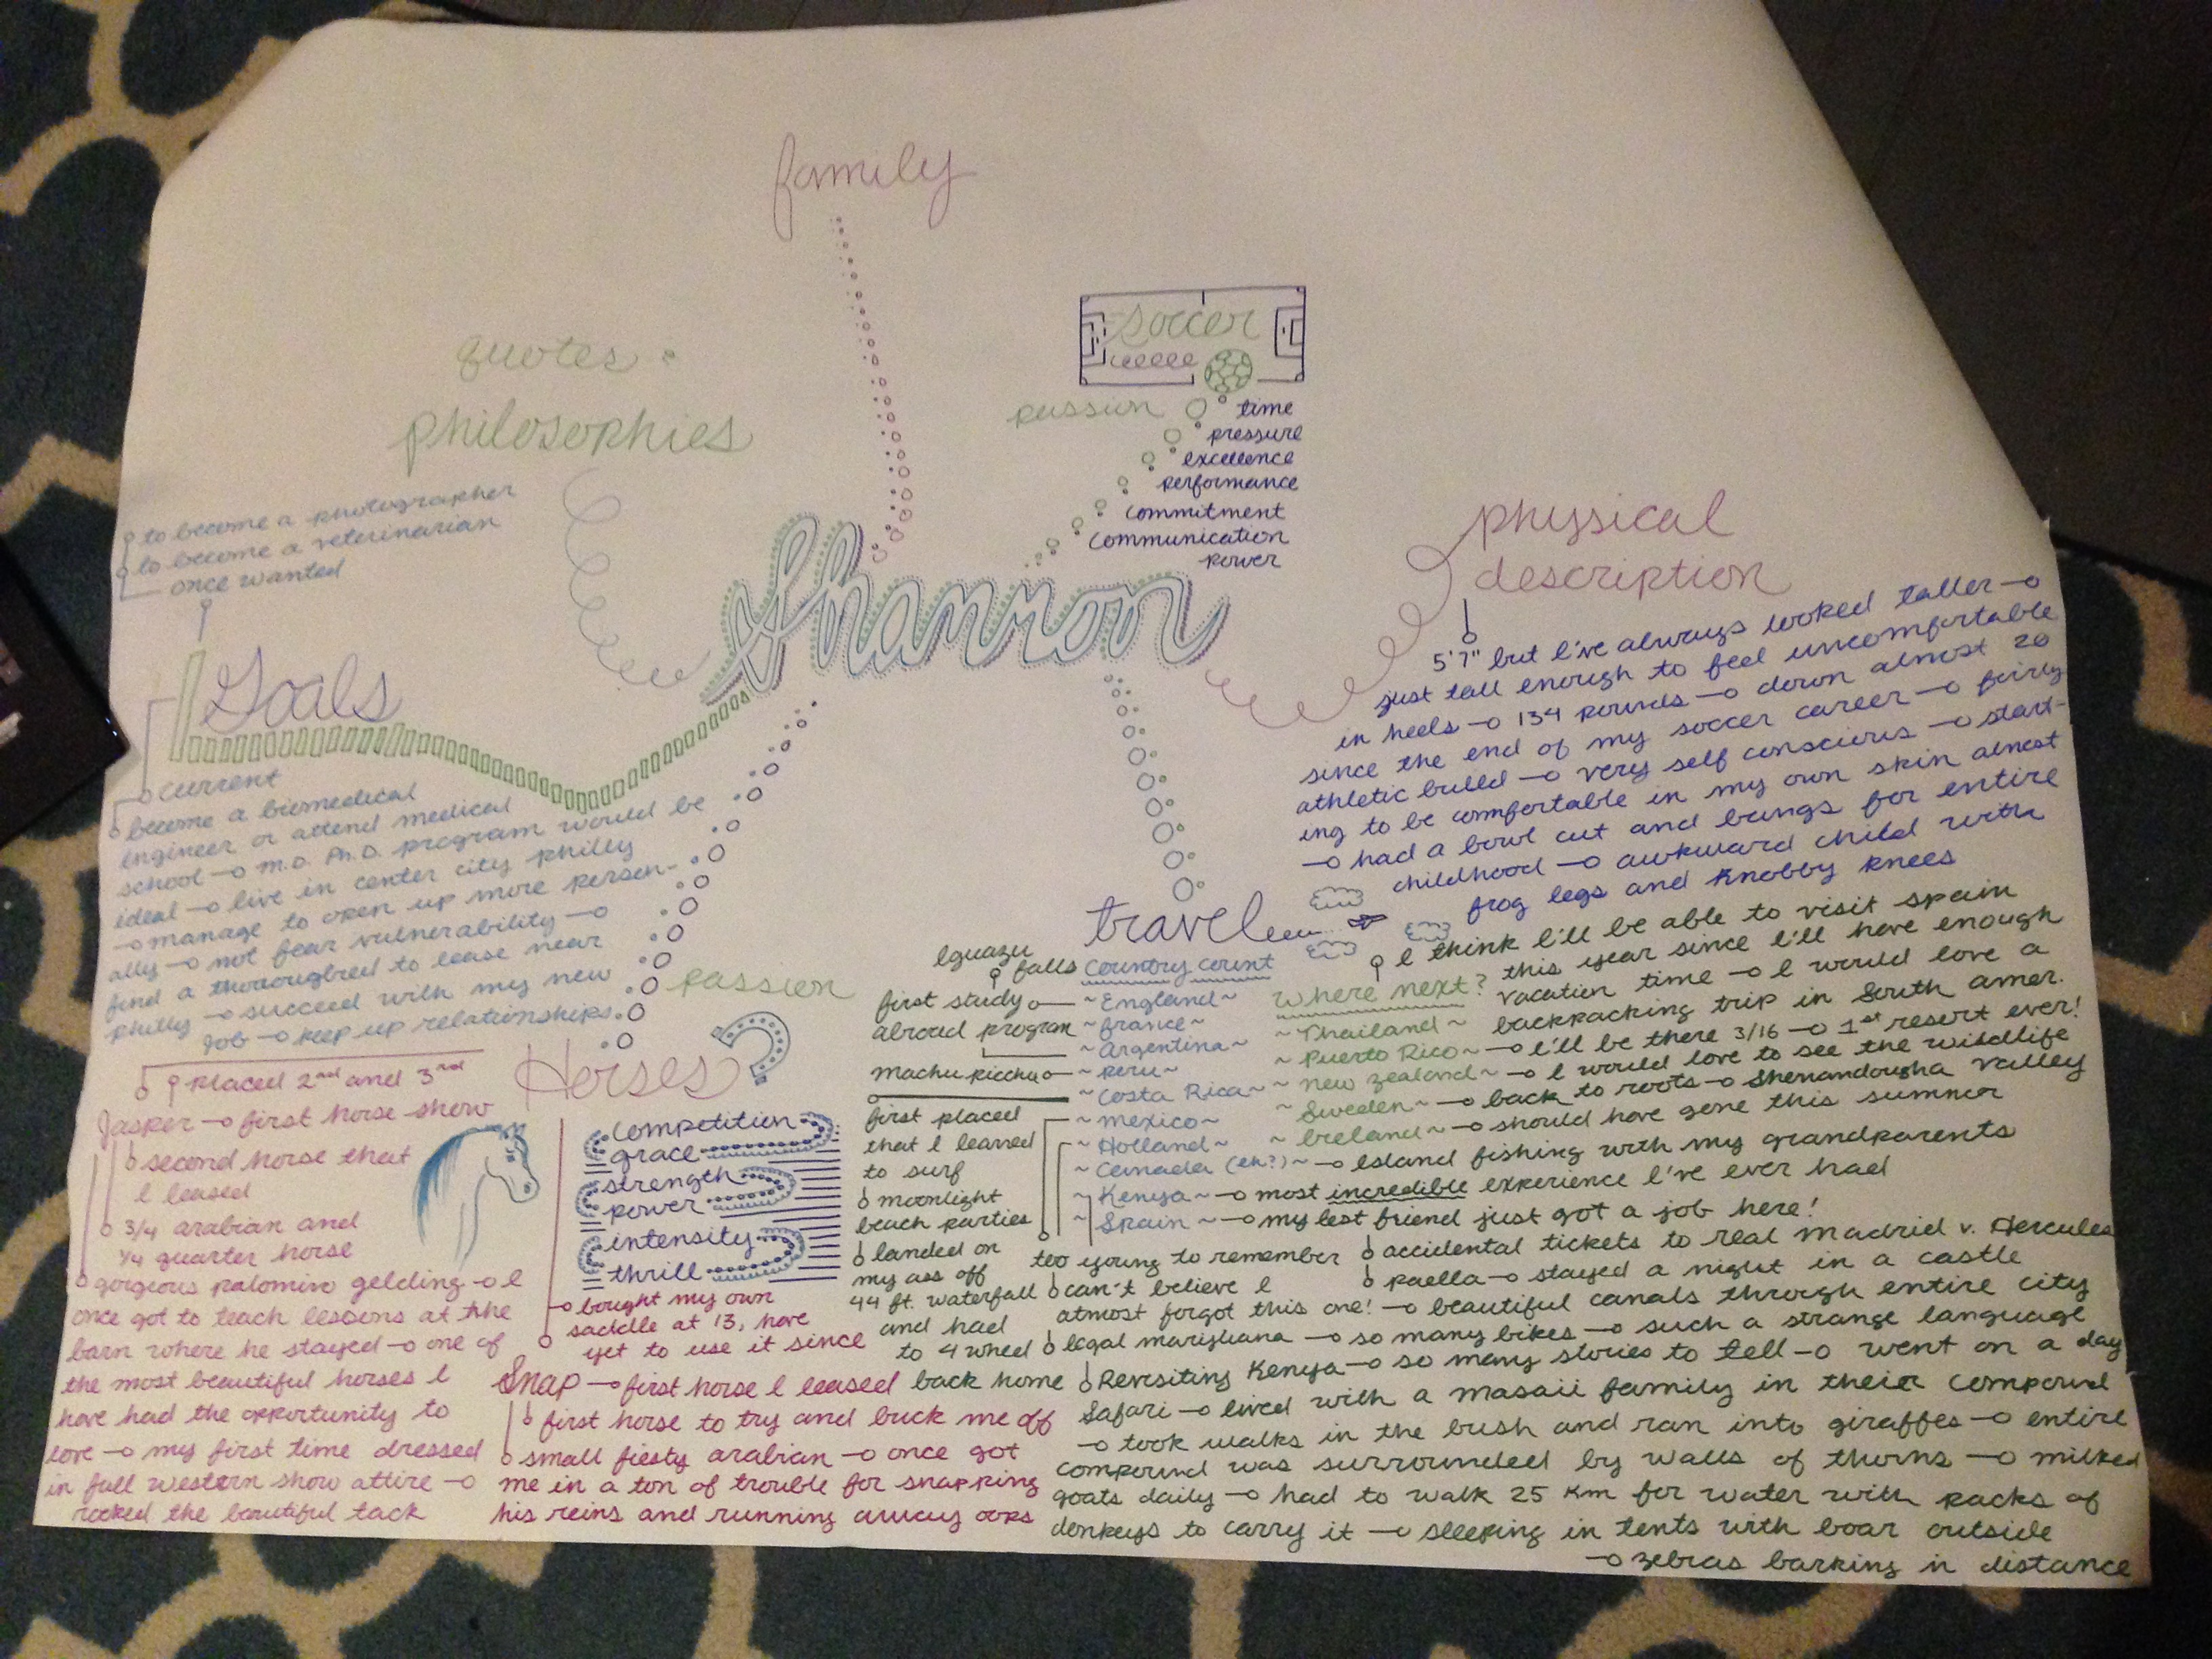 family
quotes
philosophies
soccer
passion
time
pressure
excellence
performance
commitment
communication
power
Shannon
to become a photographer
to become a veterinarian
once wanted
Goals
current
become a biomedical
engineer or attend medical
school M.D. Ph.D. program would be
ideal live in center city philly
manage to open up more person-
ally not fear vulnerability
find a thorougbred to lease near
philly succeed with my new
job keep up relationships
physical
description
5'7" but I've always looked taller
just tall enough to feel uncomfortable
in heels 134 pounds down almost 20
since the end of my soccer career fairly
athletic build very self conscious start-
ing to be comfortable in my own skin almost
had a bowl cut and bangs for entire
childhood awkward child with
frog legs and knobby knees
passion
Horses
placed 2nd and 3rd
Jasper first horse show
second horse that
I leased
3/4 arabian and
1/4 quarter horse
gorgeous palomino gelding I
once got to teach lessons at the
barn where he stayed one of
the most beautiful horses I
have had the opportunity to
love my first time dressed
in full western show attire
rocked the beautiful tack
competition
grace
strength
power
intensity
thrill
bought my own
saddle at 13, have
yet to use it since
Snap first horse I leased back home
first horse to try and buck me off
small fiesty arabian once got
me in a ton of trouble for snapping
his reins and running away oops
travel
Iguazu
falls
first study
abroad program
machu picchu
first placed
that I learned
to surf
moonlight
beach parties
landed on
my ass off
44 ft. waterfall
and had
to 4 wheel
country count
~England~
~France~
~Argentina~
~Peru~
~Costa Rica~
~Mexico~
~Holland~
~Canada (eh?)~ Island fishing with my grandparents
~Kenya~ most incredible experience I've ever had
~Spain~ my best friend just got a job here!
where next?
I think I'll be able to visit spain
this year since I'll have enough
vacation time I would love a
backpacking trip in South Amer.
~Thailand~
~Puerto Rico~ I'll be there 3/16 1st resort ever!
~New Zealand~ I would love to see the wildlife
~Sweden~ back to roots Shenandougha Valley
~Ireland~ should have gone this summer
too young to remember
accidental tickets to real madrid v. Hercules
paella stayed a night in a castle
can't believe I
atmost forgot this one! beautiful canals through entire city
legal marijuana so many bikes such a strange language
Revisiting Kenya so many stories to tell went on a day
Safari lived with a masaii family in their compound
took walks in the bush and ran into giraffes entire
compound was surrounded by walls of thorns milked
goats daily had to walk 25 km for water with packs of
donkeys to carry it sleeping in tents with boar outside
zebras barking in distance